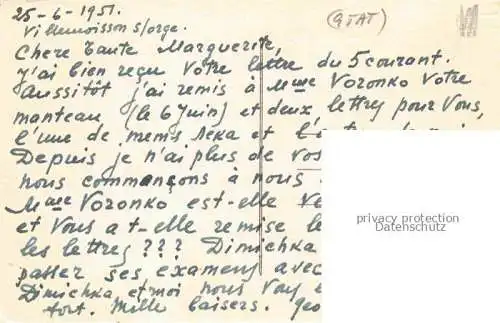 25-6-1951. (QTAT)
Villemoisson s/orge.
Chere Tante Marguerite,
j'ai bien reçu Votre lettre du 5 courant.
Aussitôt j'ai remis à Mme Voronko Votre
manteau (le 6 Juin) et deux lettres pour Vous,
l'une de et
Depuis je n'ai plus de vos
nous commançons à nous
Mme Voronko est-elle
et Vous a t-elle remise le
les lettres??? Dimichka
passer ses examens avec
Dimichka et moi nous Vous
fort. Mille baisers.
privacy protection
Datenschutz